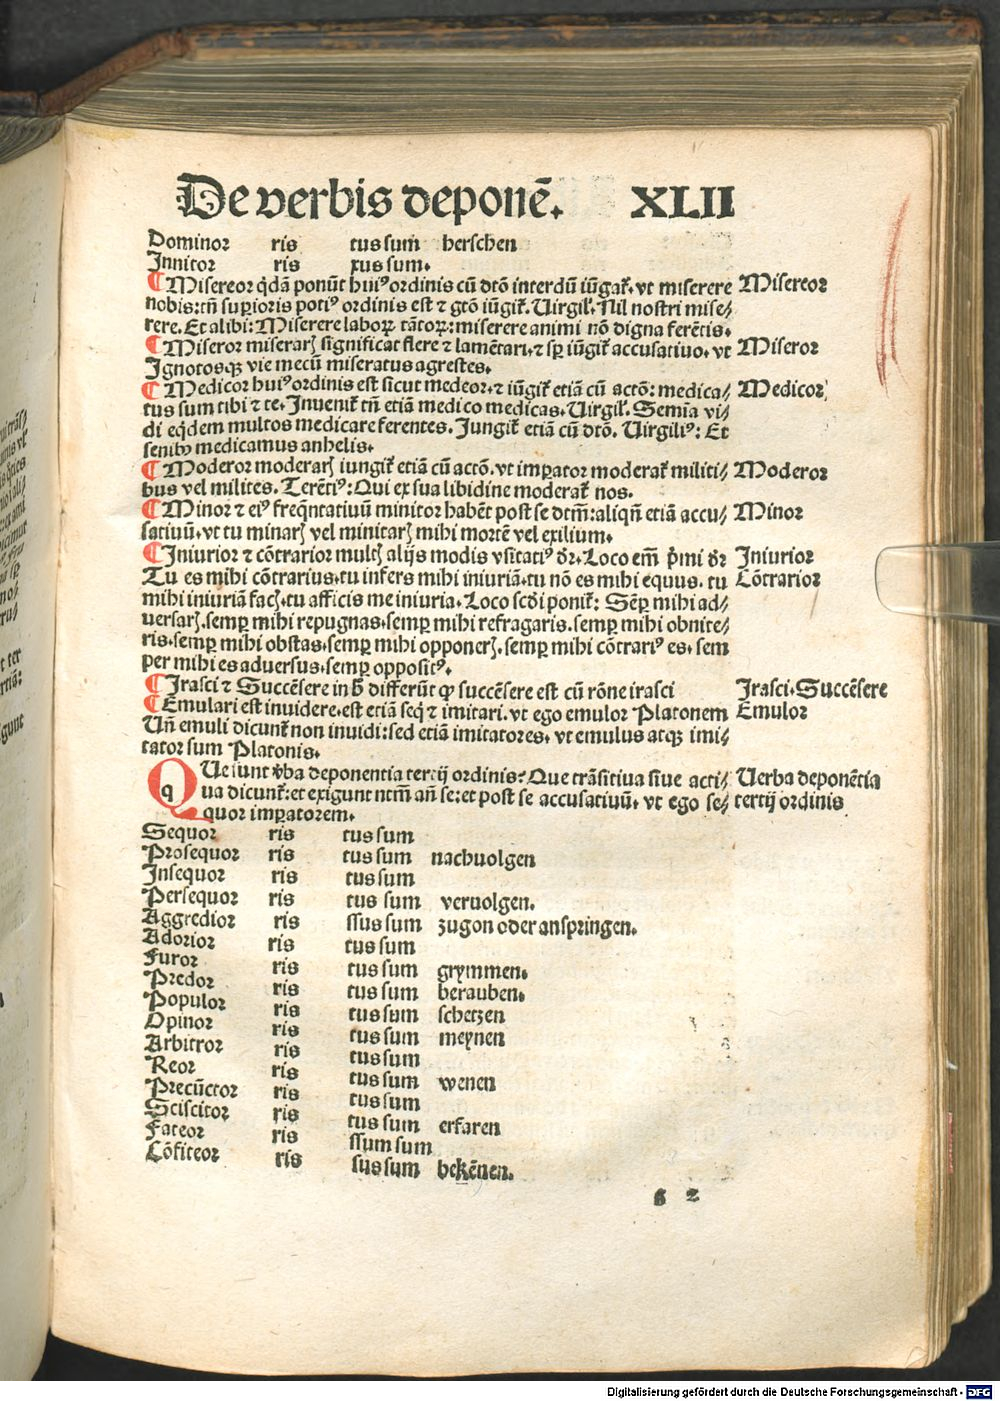 De verbis deponē. XLII
Dominor ris tus sum herschen
Innitor ris xus sum.
¶ Misereor qdā ponūt huiꝰ ordinis cū dtō interdū iūgaꝶ. vt miserere Misereor
nobis: tñ suꝑioris potiꝰ ordinis est ⁊ gtō iūgiꝶ. Uirgiɫ. Nil nostri mise⸗
rere. Et alibi: Miserere laborꝝ tātorꝝ: miserere animi nō digna ferētis.
¶ Miseror miserarꝭ significat flere ⁊ lamētari. ⁊ sꝑ iūgiꝶ accusatiuo. vt Miseror
Ignotosqꝫ vie mecū miseratus agrestes.
¶ Medicor huiꝰ ordinis est sicut medeor. ⁊ iūgiꝶ etiā cū actō: medica⸗ Medicor
tus sum tibi ⁊ te. Inueniꝶ tñ etiā medico medicas. Uirgiɫ. Semia vi⸗
di eq̇dem multos medicare ferentes. Jungiꝶ etiā cū dtō. Uirgiliꝰ: Et
senibꝰ medicamus anhelis.
¶ Moderor moderarꝭ iungiꝶ etiā cū actō. vt imꝑator moderaꝶ militi⸗ Moderor
bus vel milites. Terētiꝰ: Qui ex sua libidine moderaꝶ nos.
¶ Minor ⁊ eiꝰ freq̄ntatiuū minitor habēt post se dtm̄: aliqñ etiā accu⸗ Minor
satiuū. vt tu minarꝭ vel minitarꝭ mihi mortē vel exilium.
¶ Iniurior ⁊ cōtrarior multꝭ alijs modis vsitatiꝰ dr̄. Loco em̄ pͥmi dr̄ Iniurior
Tu es mihi cōtrarius. tu infers mihi iniuriā. tu nō es mihi equus. tu Cōtrarior
mihi iniuriā facꝭ. tu afficis me iniuria. Loco scd̄i poniꝶ: Sēꝑ mihi ad⸗
versarꝭ. semꝑ mihi repugnas. semꝑ mihi refragaris. semꝑ mihi obnite⸗
ris. semꝑ mihi obstas. semꝑ mihi opponerꝭ. semꝑ mihi cōtrariꝰ es. sem
per mihi es aduersus. semꝑ oppositꝰ.
¶ Irasci ⁊ Succēsere in h̄ differūt qꝙ succēsere est cū rōne irasci Irasci. Succēsere
¶ Emulari est inuidere. est etiā seq̇ ⁊ imitari. vt ego emulor Platonem Emulor
Uñ emuli dicunꝶ non inuidi: sed etiā imitatores. vt emulus atqꝫ imi⸗
tator sum Platonis.
QUe sunt v̄ba deponentia tertij ordinis? Que trāsitiua siue acti⸗ Uerba deponētia
ua dicunꝶ: et exigunt ntm̄ añ se: et post se accusatiuū. vt ego se⸗ tertij ordinis
quor imꝑatorem.
Sequor ris tus sum
Prosequor ris tus sum nachuolgen
Insequor ris tus sum
Persequor ris tus sum veruolgen.
Aggredior ris ssus sum zugon oder anspringen.
Adorior ris tus sum
Furor ris tus sum grymmen.
Predor ris tus sum berauben.
Populor ris tus sum schetzen
Opinor ris tus sum meynen
Arbitror ris tus sum
Reor ris tus sum wenen
Precūctor ris tus sum
Sciscitor ris tus sum erfaren
Fateor ris ssum sum
Cōfiteor ris sus sum bekēnen.
g 2
Digitalisierung gefördert durch die Deutsche Forschungsgemeinschaft - DFG